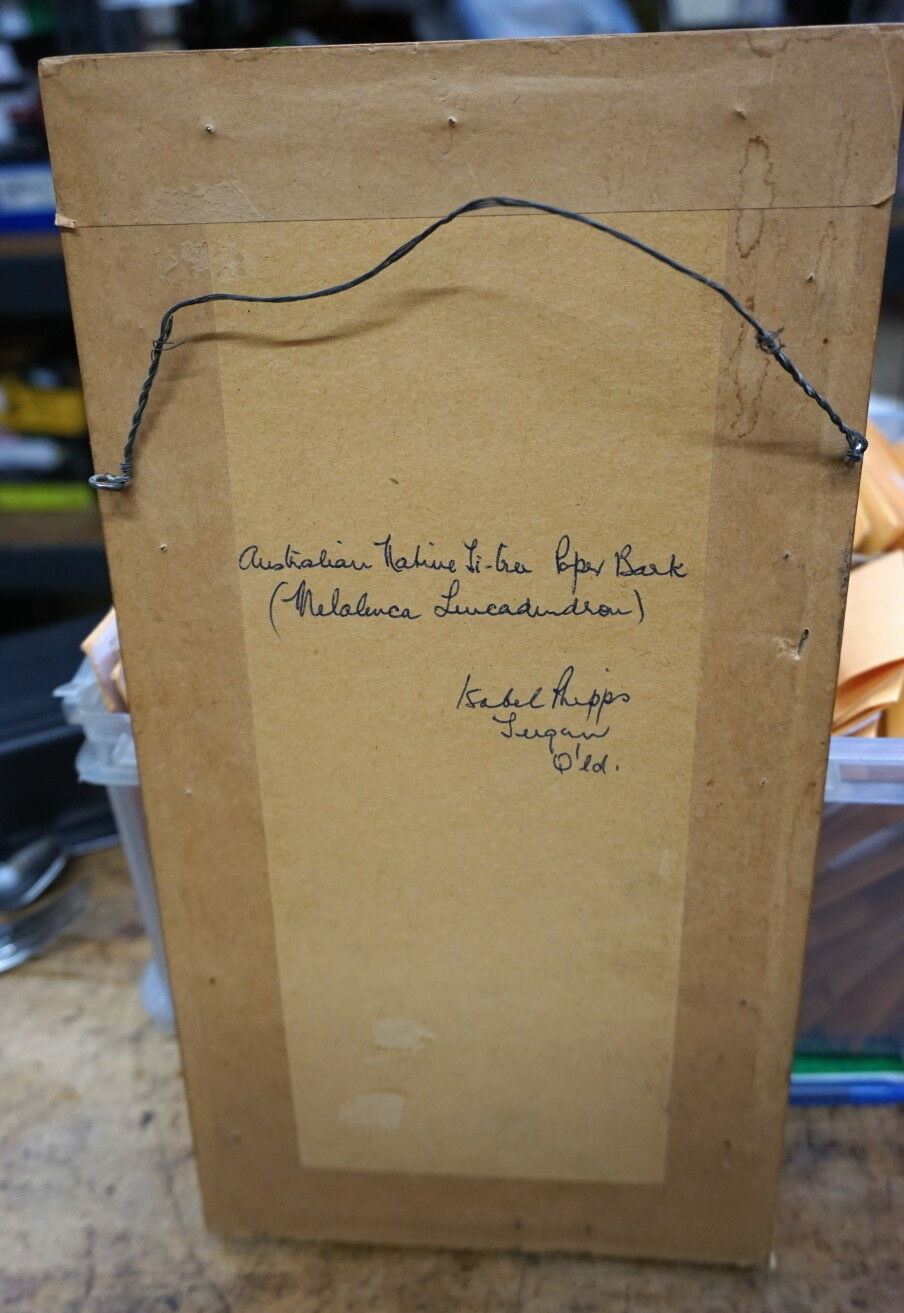 Australian Native Ti-tree Paper Bark
(Melaleuca Leucadendron)
Isabel Phipps
Q'ld.